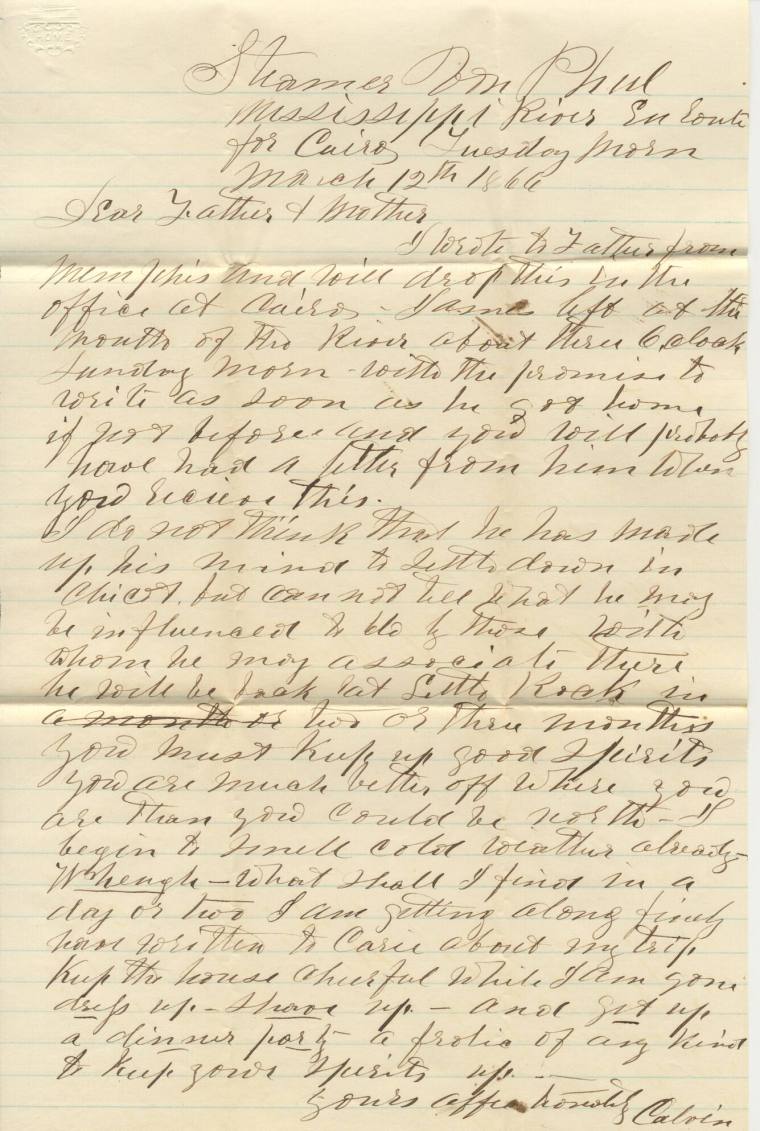 Steamer Von Phul
Mississippi River En Route
for Cairo, Tuesday Morn
March 12th 1866
Dear Father & Mother
I wrote to Father from
Memphis and will drop this in the
office at Cairo - James left at the
mouth of the River about three O,clock
Sunday Morn - with the promise to
write as soon as he got home
if not before and you will probably
have had a letter from him when
you recieve this.
I do not think that he has made
up his mind to settle down in
Chicot. but can not tell what he may
be influenced to do by those with
whom he may associate there
he will be back at Little Rock in
a month or two or three months
you must keep up good spirits
you are much better off where you
are than you could be north - I
begin to smell cold weather already -
Wheugh - What shall I find in a
day or two I am getting along finely
have written to Carie about my trip
Keep the house cheerful while I am gone
dress up - shave up - and get up
a dinner party a frolic of any kind
to keep your spirits up -
yours affectionately Calvin